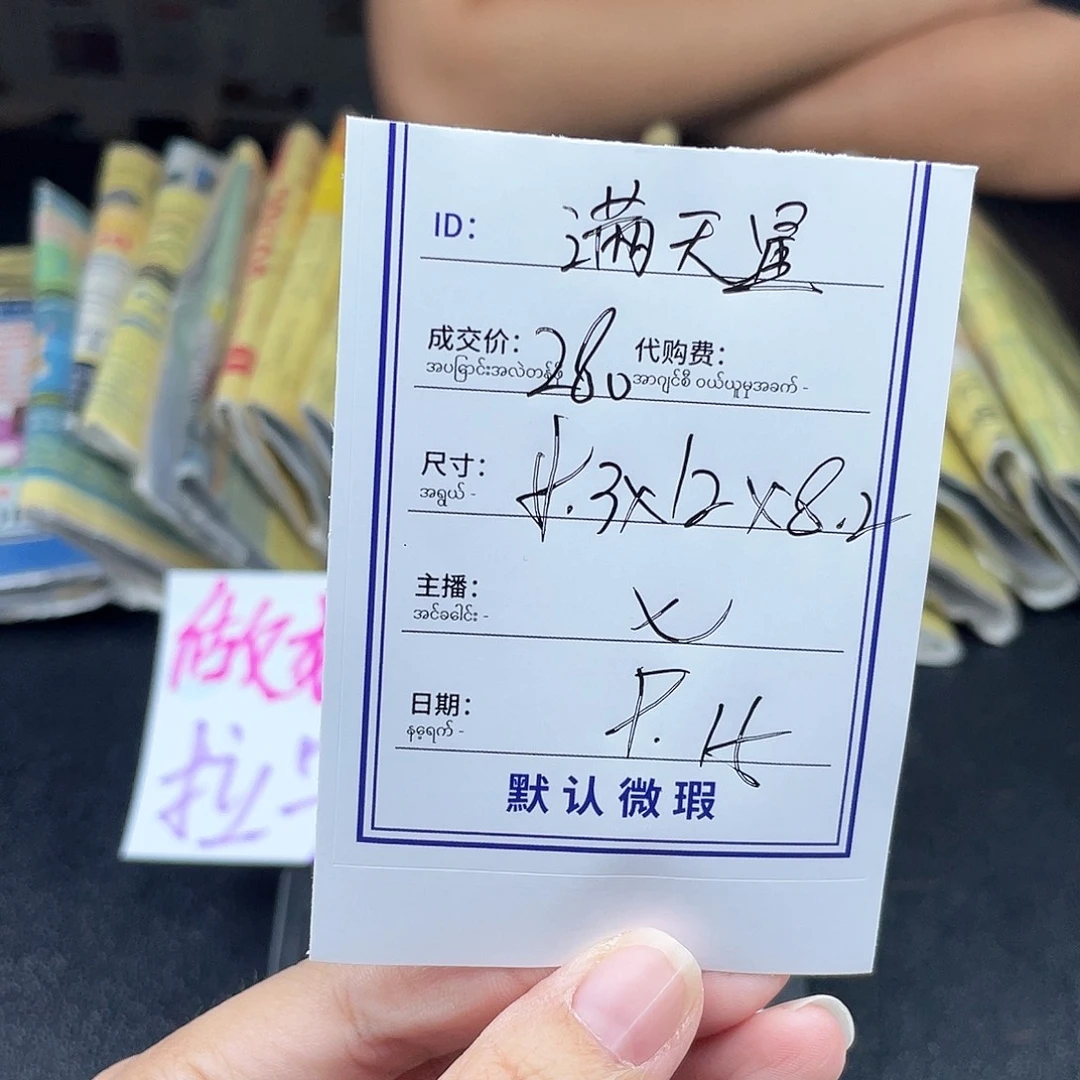 ID: 满天星
成交价: 280 代购费:
အပြောင်းအလဲတန်ဖိုး အာဂျင်စီ ဝယ်ယူမှုအခက် -
尺寸: .3x12x8.2
အရွယ် -
主播: x
အင်ခေါင်း -
日期:
နေ့ရက် -
默认微瑕
做
拉